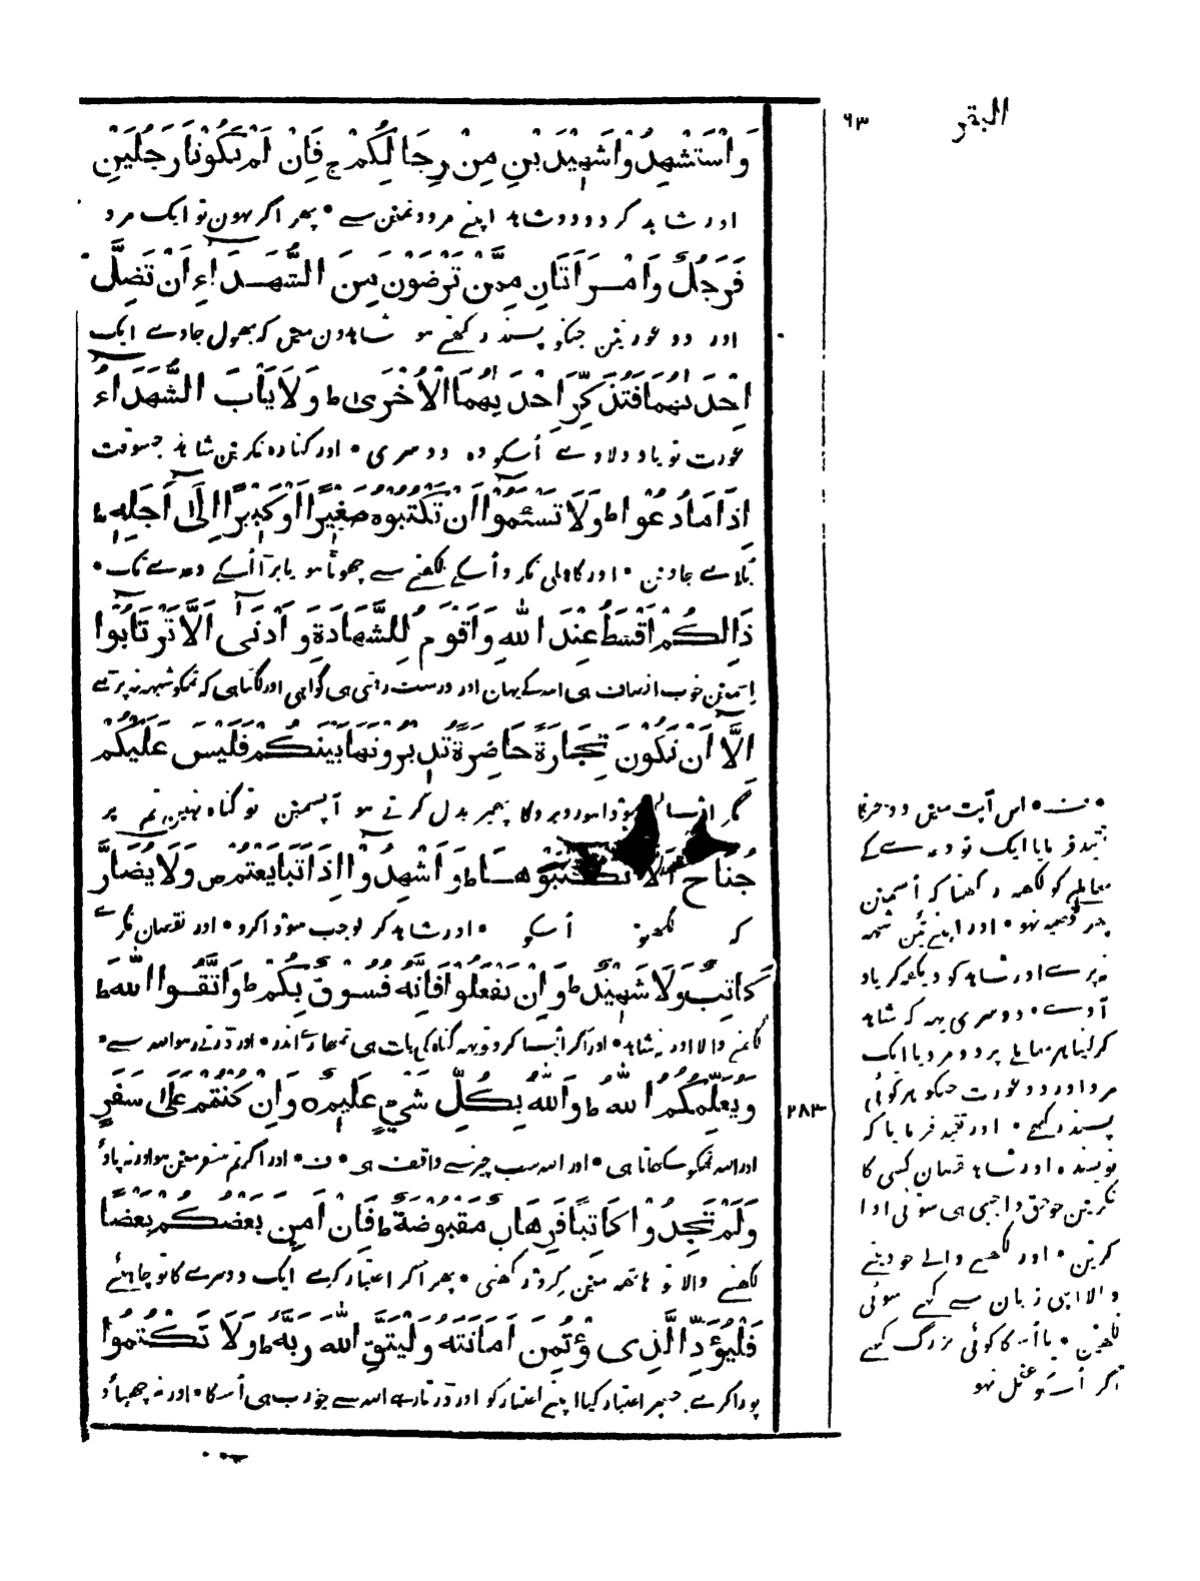 البقر
٦٣
وَاسْتَشْهِدُوْا شَهِيْدَيْنِ مِنْ رِجَالِكُمْ ج فَاِنْ لَمْ يَكُوْنَا رَجُلَيْنِ
اور شاہد کرو دو شاہد اپنے مردونمین سے • پھر اگر نہون تو ایک مرد
فَرَجُلٌ وَامْرَاَتَانِ مِمَّنْ تَرْضَوْنَ مِنَ الشُّهَدَاءِ اَنْ تَضِلَّ
اور دو عورتین جنکو پسند رکھتے ہو شاہدون مین کہ بھول جاوے ایک
اِحْدٰىهُمَا فَتُذَكِّرَ اِحْدٰىهُمَا الْاُخْرٰى ط وَلَا يَاْبَ الشُّهَدَاءُ
عورت تو یاد دلاوے اُسکو وہ دوسری • اور کنارہ نکرین شاہد جسوقت
اِذَا مَا دُعُوْا ط وَلَا تَسْئَمُوْا اَنْ تَكْتُبُوْهُ صَغِيْرًا اَوْ كَبِيْرًا اِلٰى اَجَلِهٖ ط
بُلاے جاوین • اور کاہلی نکرو اُسکے لکھنے سے چھوٹا ہو یا بڑا اُسکے وعدے تک •
ذَالِكُمْ اَقْسَطُ عِنْدَ اللهِ وَاَقْوَمُ لِلشَّهَادَةِ وَ اَدْنٰى اَلَّا تَرْتَابُوْا
اِسمین خوب انصاف ہی اللہ کے یہان اور درست رہتی ہی گواہی اور لگتا ہی کہ تمکو شبہہ نہ پڑے
اِلَّا اَنْ تَكُوْنَ تِجَارَةً حَاضِرَةً تُدِيْرُوْنَهَا بَيْنَكُمْ فَلَيْسَ عَلَيْكُمْ
مگر ایسا سودا ہو روبرو کا پھیر بدل کرتے ہو آپسمین تو گناہ نہین تم پر
جُنَاحٌ اَلَّا تَكْتُبُوْهَا ط وَ اَشْهِدُوْا اِذَا تَبَايَعْتُمْ ص وَلَا يُضَارَّ
کہ نہ لکھو اُسکو • اور شاہد کر لو جب سودا کرو • اور نقصان نکرے
كَاتِبٌ وَلَا شَهِيْدٌ ط وَ اِنْ تَفْعَلُوْا فَاِنَّهُ فُسُوْقٌ بِكُمْ ط وَاتَّقُوا اللهَ ط
لکھنے والا اور نہ شاہد • اور اگر ایسا کرو تو یہہ گناہ کی بات ہی تمھارے اندر • اور ڈرتے رہو اللہ سے •
وَيُعَلِّمُكُمُ اللهُ ط وَاللهُ بِكُلِّ شَيْءٍ عَلِيْمٌ ه وَاِنْ كُنْتُمْ عَلٰى سَفَرٍ
٢٨٣
اور اللہ تمکو سکھاتا ہی • اور اللہ سب چیز سے واقف ہی • ف • اور اگر تم سفر مین ہو اور نہ پاؤ
وَلَمْ تَجِدُوْا كَاتِبًا فَرِهَانٌ مَقْبُوْضَةٌ ط فَاِنْ اَمِنَ بَعْضُكُمْ بَعْضًا
لکھنے والا تو ہاتھہ مین گرو رکھنی • پھر اگر اعتبار کرے ایک دوسرے کا تو چاہئے
فَلْيُؤَدِّ الَّذِى ؤْتُمِنَ اَمَانَتَهُ وَلْيَتَّقِ اللهَ رَبَّهُ ط وَلَا تَكْتُمُوْا
پورا کرے جسپر اعتبار کیا اپنے اعتبار کو اور ڈرتا رہے اللہ سے جو رب ہی اُسکا • اور نہ چھپاؤ
• ف • اس آیت مین دو چیز کا
تقید فرمایا ایک تو وعدے کے
معاملے کو لکھہ رکھنا کہ اُسمین
پھر قضیہ نہو • اور اپنے تئین شبہہ
نہ پڑے اور شاہد کو دیکھہ کر یاد
آوے • دوسری یہہ کہ شاہد
کر لینا ہر معاملے پر دو مرد یا ایک
مرد اور دو عورت جنکو ہر کوئی
پسند رکھے • اور تقید فرمایا کہ
نویسندہ اور شاہد نقصان کسی کا
نکرین جو حق واجبی ہی سوئی ادا
کرین • اور لکھنے والے جو دینے
والا اپنی زبان سے کہے سوئی
لکھین • یا اُسکا کوئی بزرگ کہے
اگر اُسکو عقل نہو